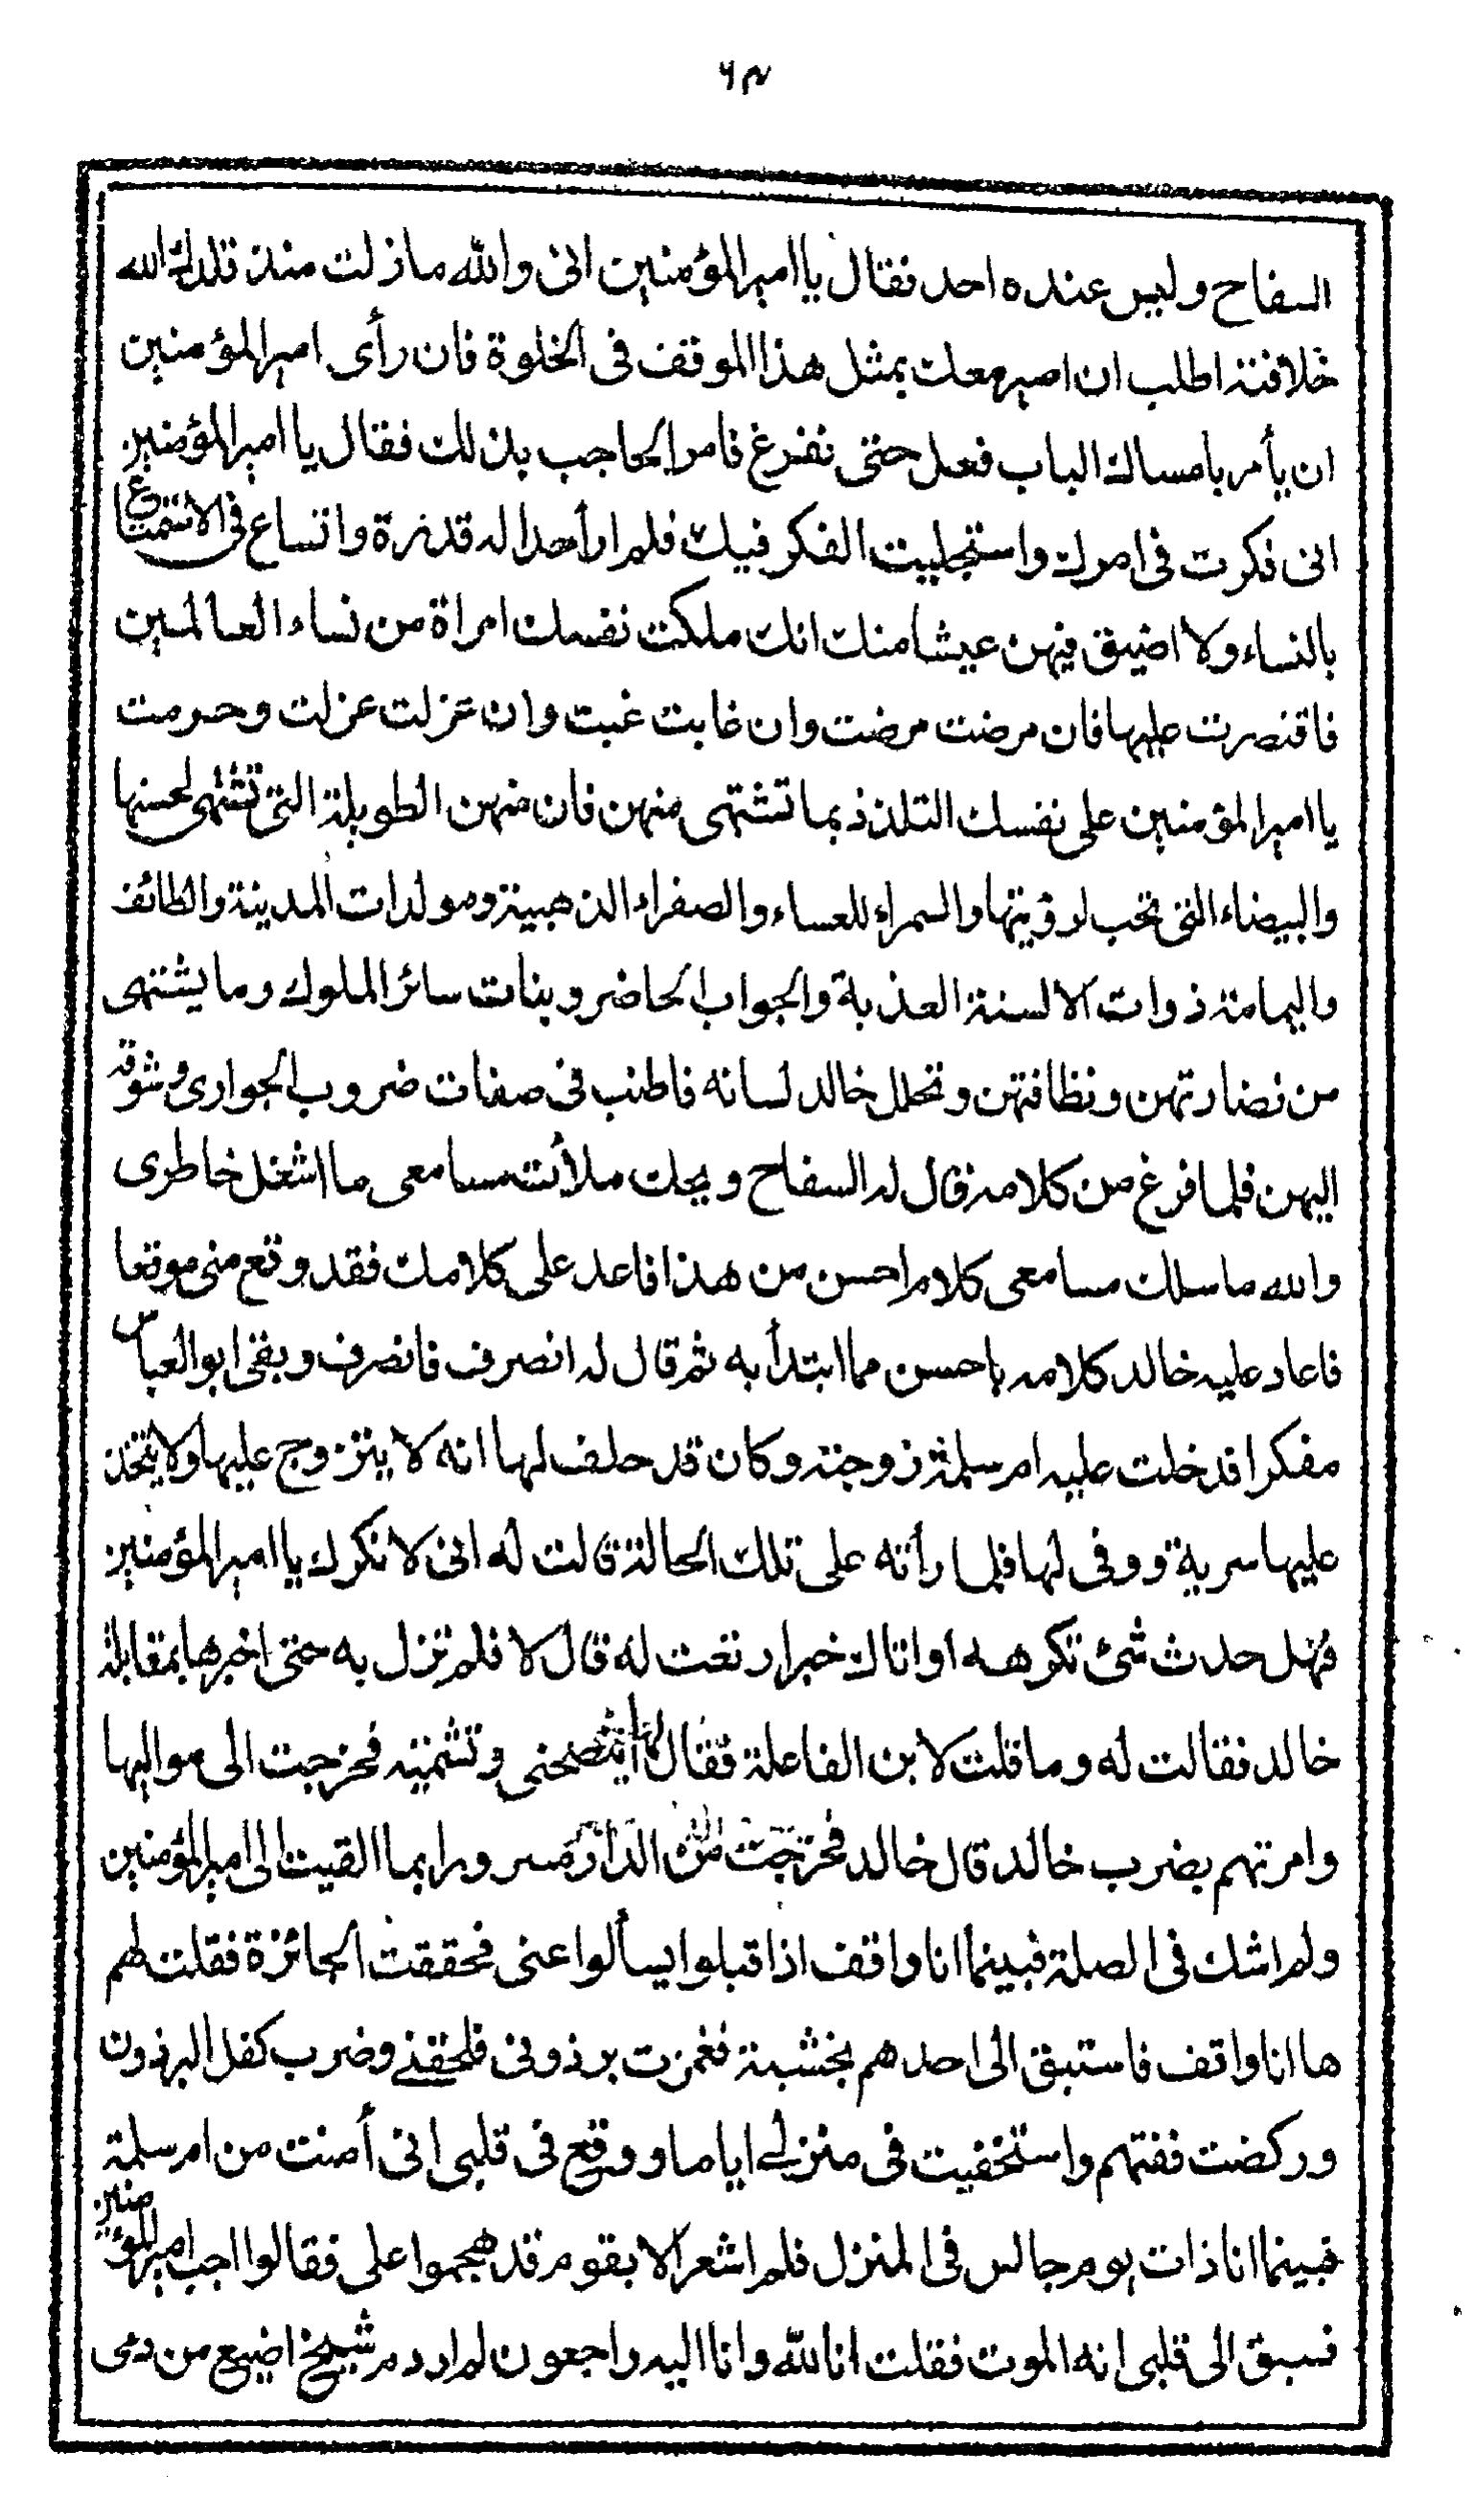 ٦٣
السفاح وليس عنده احد فقال يا امير المؤمنين انى والله ما زلت منذ قلدك الله
خلافته اطلب ان اصير معك بمثل هذا الموقف فى الخلوة فان رأى امير المؤمنين
ان يأمر بامساك الباب فعل حتى نفرغ فامر الحاجب بذلك فقال يا امير المؤمنين
انى فكرت فى امرك واستجليت الفكر فيك فلم ار أحدا له قدرة واتساع فى الاستمتاع
بالنساء ولا اضيق فيهن عيشا منك انك ملكت نفسك امراة من نساء العالمين
فاقتصرت عليها فان مرضت مرضت وان غابت غبت وان عزلت عزلت وحرمت
يا امير المؤمنين على نفسك التلذذ بما تشتهى منهن فان منهن الطويلة التى تشتهى لحسنها
والبيضاء التى تحب لرؤيتها والسمراء للعساء والصفراء الذهبية ومولدات المدينة والطائف
واليمامة ذوات الالسنة العذبة والجواب الحاضر وبنات سائر الملوك وما يشتهى
من نضارتهن ونظافتهن وتحلل خالد لسانه فاطنب فى صفات ضروب الجوارى وشوقه
اليهن فلما فرغ من كلامه قال له السفاح ويحك ملأت مسامعى ما اشغل خاطرى
والله ما سلك مسامعى كلام احسن من هذا فاعد على كلامك فقد وقع منى موقعا
فاعاد عليه خالد كلامه باحسن مما ابتدأ به ثم قال له انصرف فانصرف وبقى ابو العباس
مفكرا فدخلت عليه ام سلمة زوجته وكان قد حلف لها انه لا يتزوج عليها ولا يتخذ
عليها سرية ووفى لها فلما رأته على تلك الحالة قالت له انى لانكرك يا امير المؤمنين
فهل حدث شئ تكرهه او اتاك خبر ارتعت له قال لا فلم تزل به حتى اخبرها بمقابلة
خالد فقالت له وما قلت لابن الفاعلة فقال لها أينصحنى وتشتميه فخرجت الى مواليها
وامرتهم بضرب خالد قال خالد فخرجت من الدار مسرورا بما القيت الى امير المؤمنين
ولم اشك فى الصلة فبينما انا واقف اذ اقبلوا يسألوا عنى فحققت الجائزة فقلت لهم
ها انا واقف فاستبق الى احدهم بخشبة فغمزت برذونى فلحقنى وضرب كفل البرذون
وركضت ففتهم واستخفيت فى منزلى اياما ووقع فى قلبى انى أمنت من ام سلمة
فبينما انا ذات يوم جالس فى المنزل فلم اشعر الا بقوم قد هجموا على فقالوا اجب امير المؤمنين
فسبق الى قلبى انه الموت فقلت انا لله وانا اليه راجعون لم ار دم شيخ اضيع من دمى